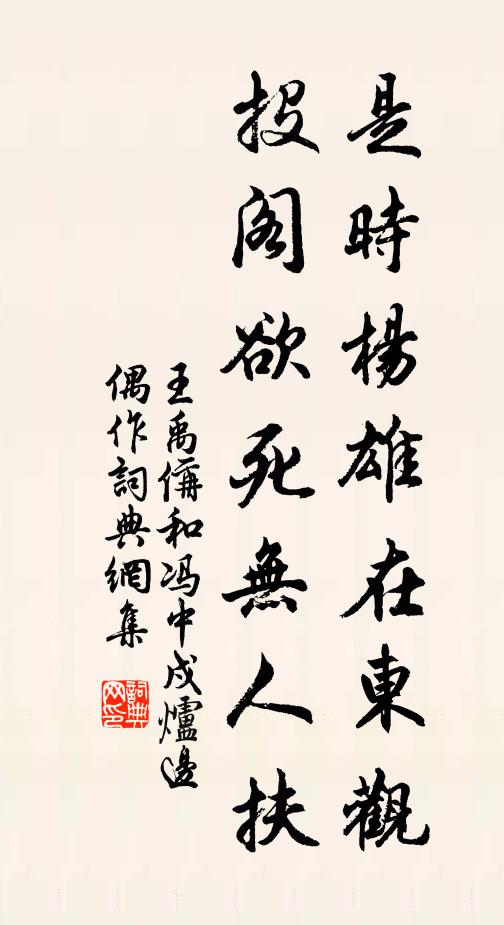 是時楊雄在東觀
投阁欲死無人扶
王禹偁和冯中戍爐邊
偶作詞典網集
詞典网印